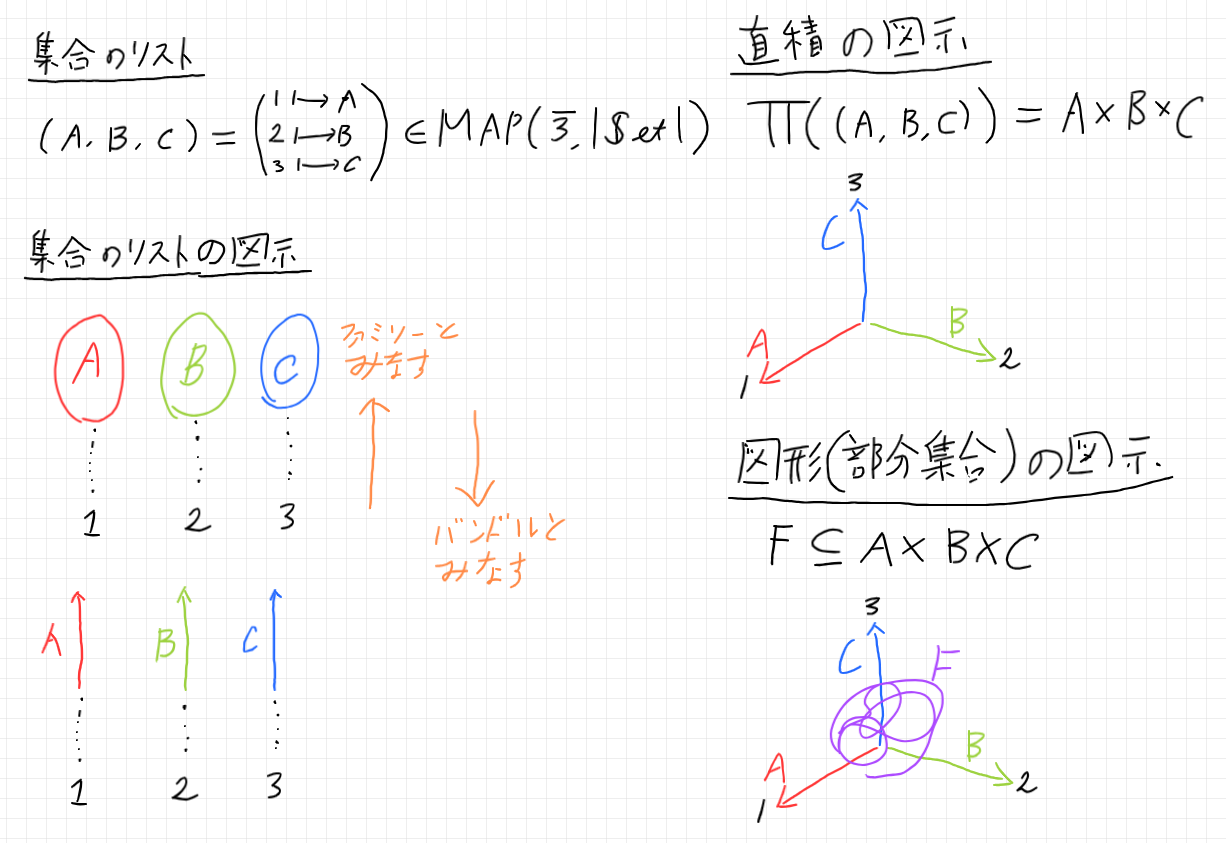 集合のリスト
(A, B, C) = (1 ↦ A
2 ↦ B
3 ↦ C) ∈ MAP(3̅, |Set|)
集合のリストの図示
A B C
1 2 3
ファミリーと
みなす
バンドルと
みなす
A B C
1 2 3
直積の図示
∏((A, B, C)) = A × B × C
3
C
B
A
2
1
図形(部分集合)の図示
F ⊆ A × B × C
3
C
F
B
A
2
1